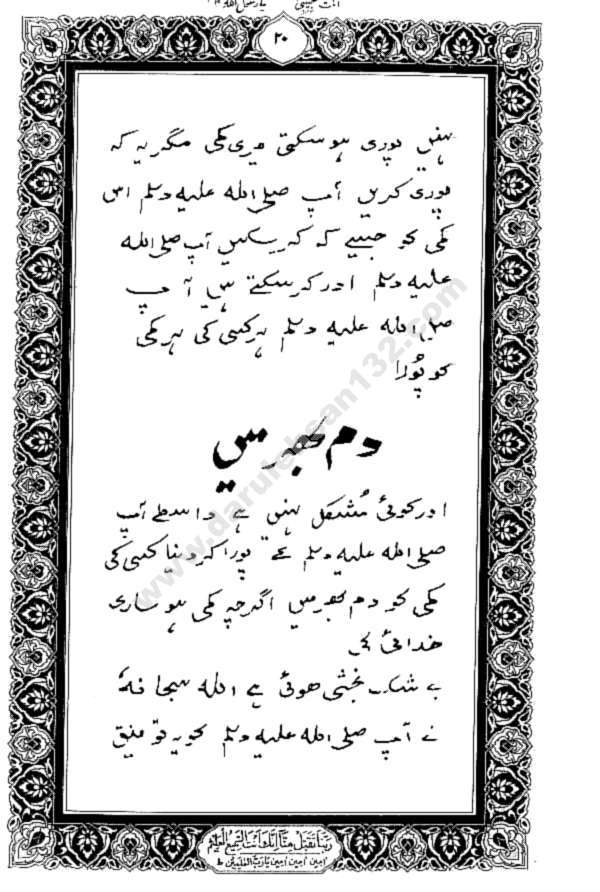 انت حبیبی یا رسول اللہ
۲۰
نہیں پوری ہو سکتی میری کمی مگر یہ کہ
پوری کریں آپ صلی اللہ علیہ وسلم اس
کمی کو جیسے کہ کر سکیں آپ صلی اللہ
علیہ وسلم اور کر سکتے ہیں آپ
صلی اللہ علیہ وسلم ہر کسی کی ہر کمی
کو پُورا
دم بھر میں
اور کوئی مُشکل نہیں ہے واسطے آپ
صلی اللہ علیہ وسلم کے پورا کر دینا کسی کی
کمی کو دم بھر میں اگرچہ کمی ہو ساری
خدائی کی
بے شک بخشی ہوئی ہے اللہ سبحانہٗ
نے آپ صلی اللہ علیہ وسلم کو یہ توفیق
ربنا تقبل منا انک انت السمیع العلیم
امین امین امین یا رب العلمین ط
www.darulehsan132.com